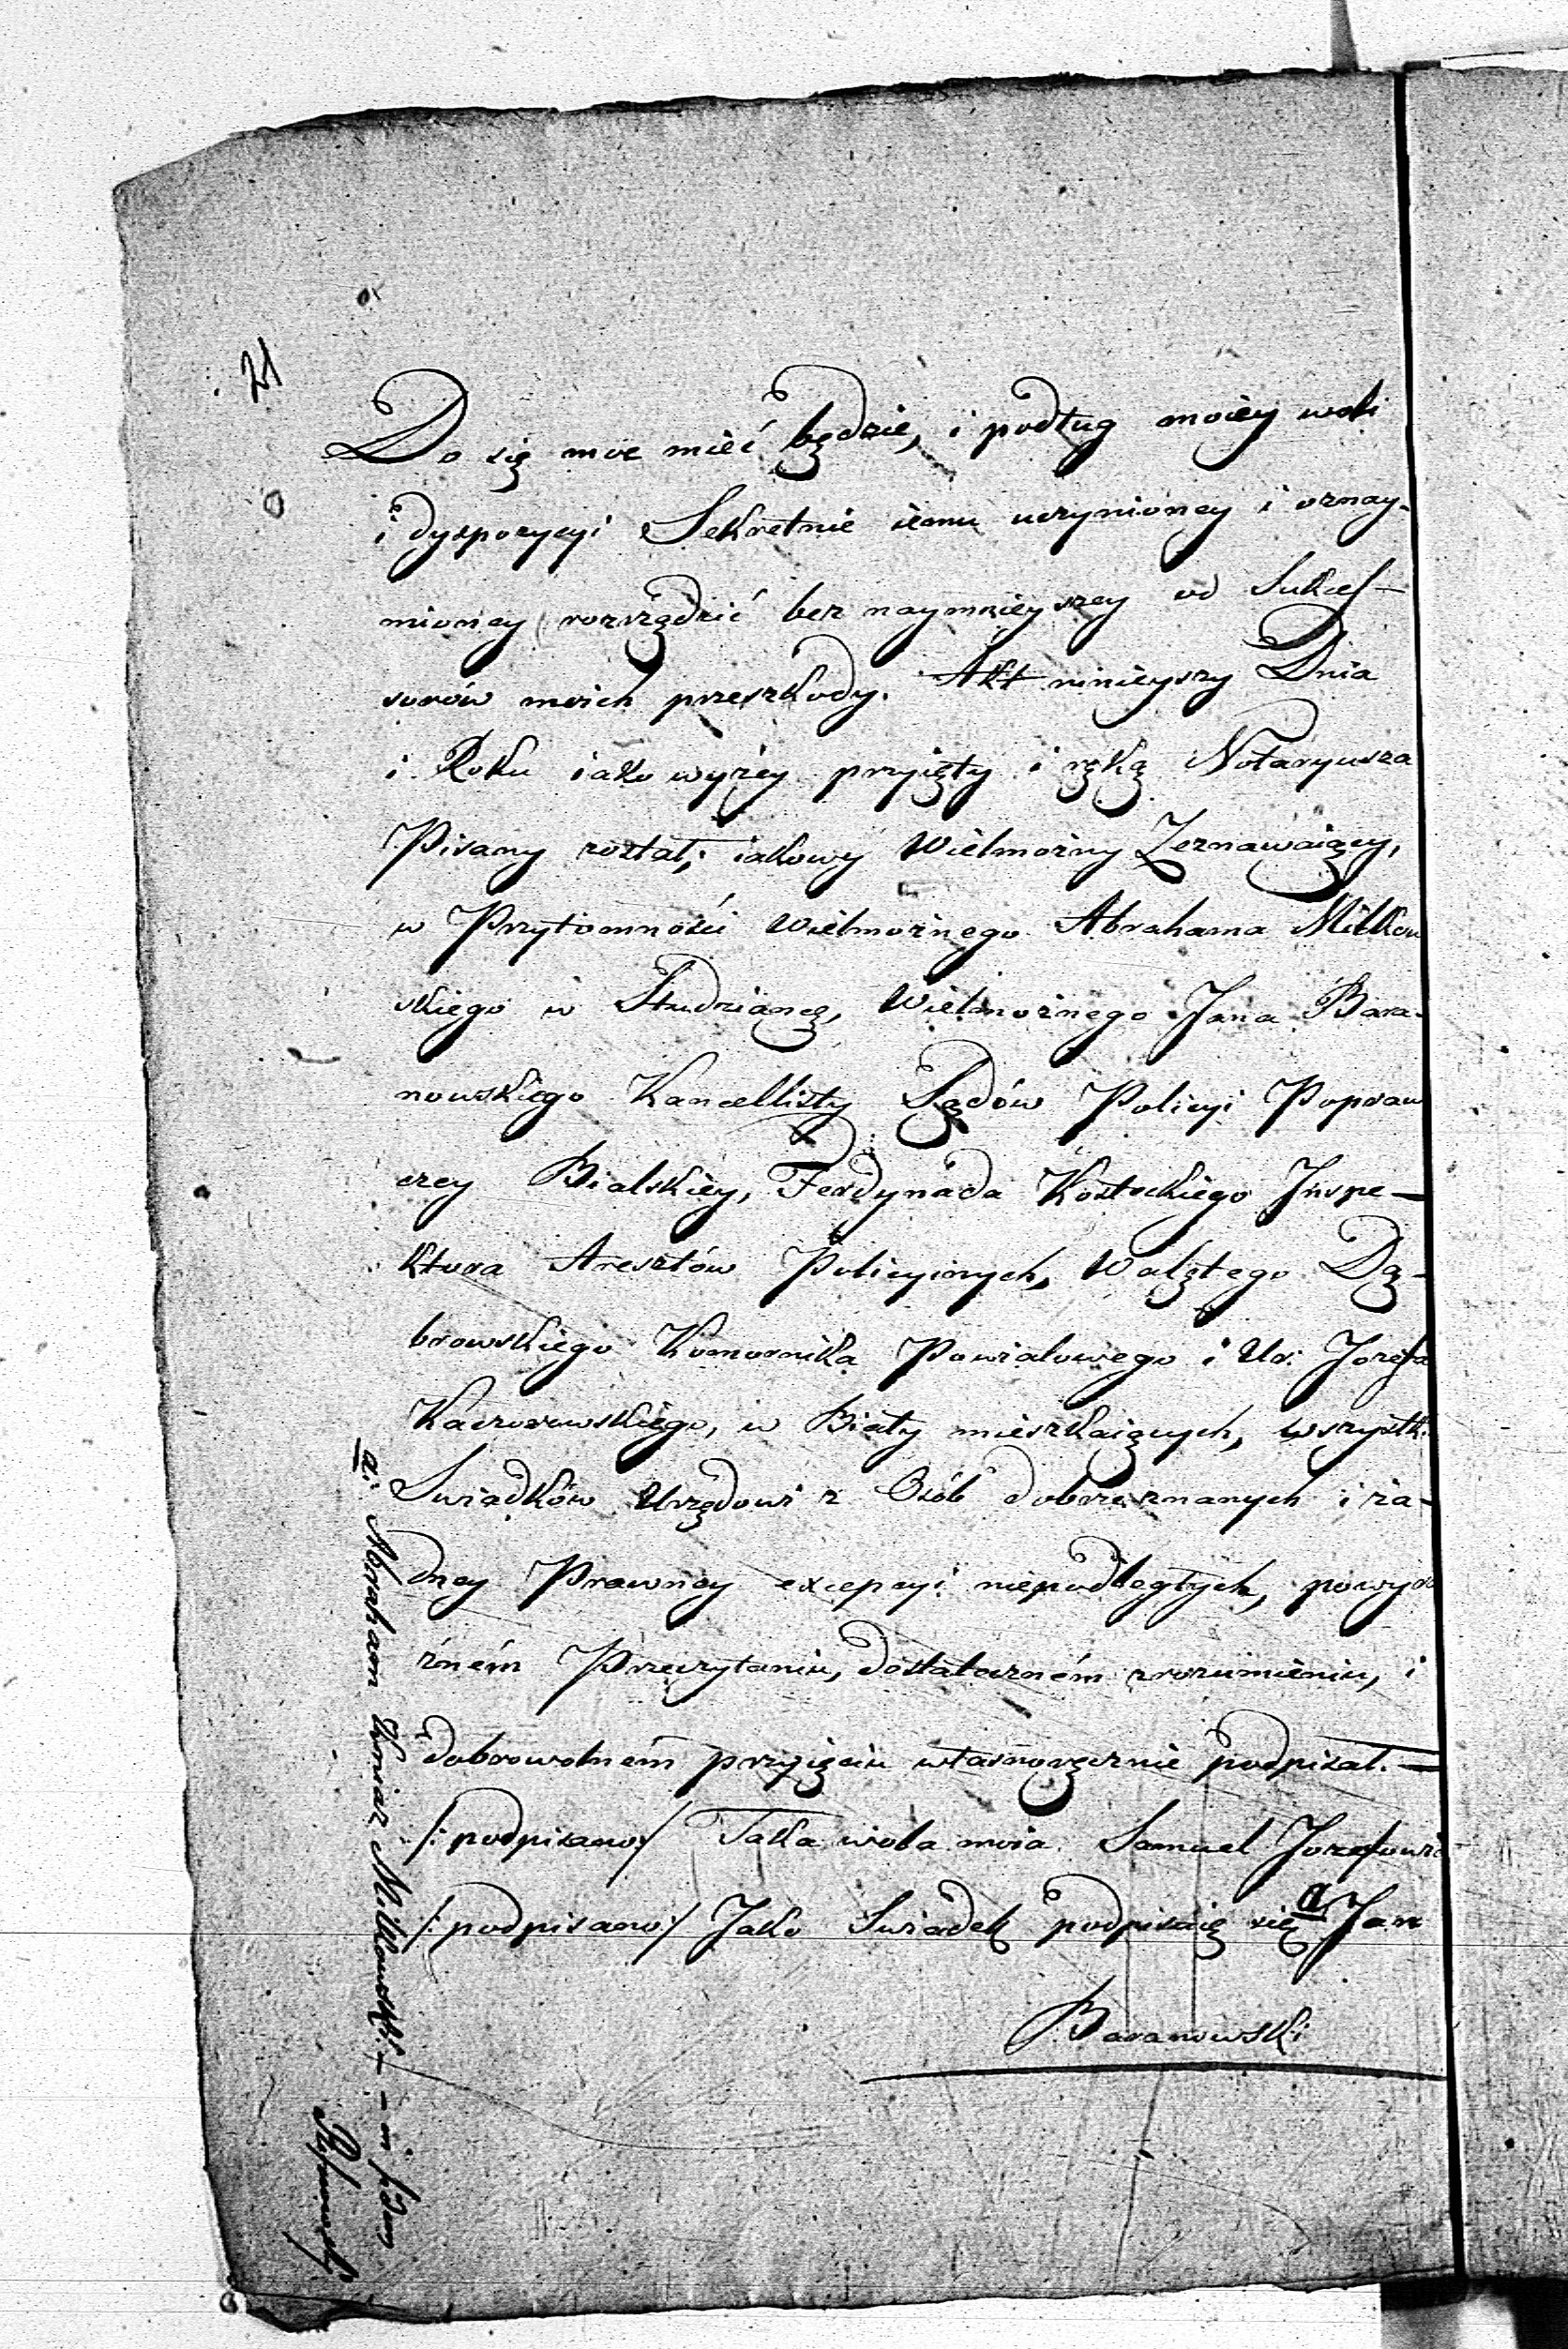 21
Do się moc mieć będzie, i podług moiey woli
i dyspozycyi Sekretnie iemu uczynioney i oznay-
mioney rozrządzić bez naymnieyszey od Sukces-
sorów moich przeszkody. Akt ninieyszy Dnia
i Roku iako wyżey przyięty i ręką Notaryusza
Pisany został, iakowy Wielmożny Zeznawaiący,
w Przytomności Wielmożnego Abrahama Milkow
skiego w Studziancę, Wielmożnego Jana Bara-
nowskiego Kancellisty Sądów Policyi Popraw
czey Bialskiey, Ferdynada Kosteckiego Inspe-
ktora Aresztów Policyinych, Walętego Dą-
browskiego Komornika Powiatowego i Ur: Jozefa
Kaczorowskiego, w Biały mieszkaiących, wszystk:
Swiadków Urzędowi z Osób dobrze znanych i ża-
dney Prawney excepcyi niepodległych, powyra
źném Przeczytaniu, dostateczném zrozumieniu, i
dobrowolném przyięciu własnoręcznie podpisał.
/: podpisano :/ Taka wola moia Samuel Jozefowic
/: podpisano :/ Jako Swiadek podpisuię się a Jan
Baranowski
a: Abraham Kniaz Milkowski. - - in fidem